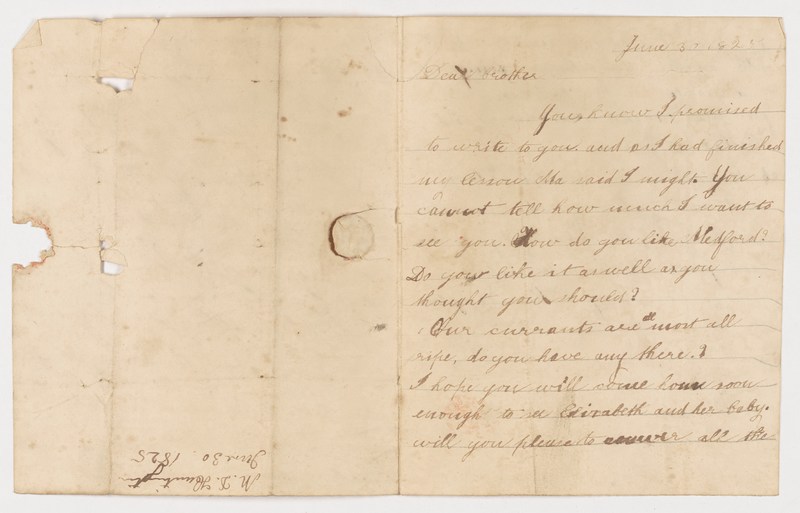 June 30 182
Dear Brother
You know I promised
to write to you. and as I had finished
my lesson Ma said I might. You
cannot tell how much I want to
see you. How do you like Medford?
Do you like it as well as you
thought you should?
Our currants are most all
ripe, do you have any there.?
I hope you will come home soon
enough to see Elizabeth and her baby.
will you please to answer all the
M. D. Huntington
June 30. 1825